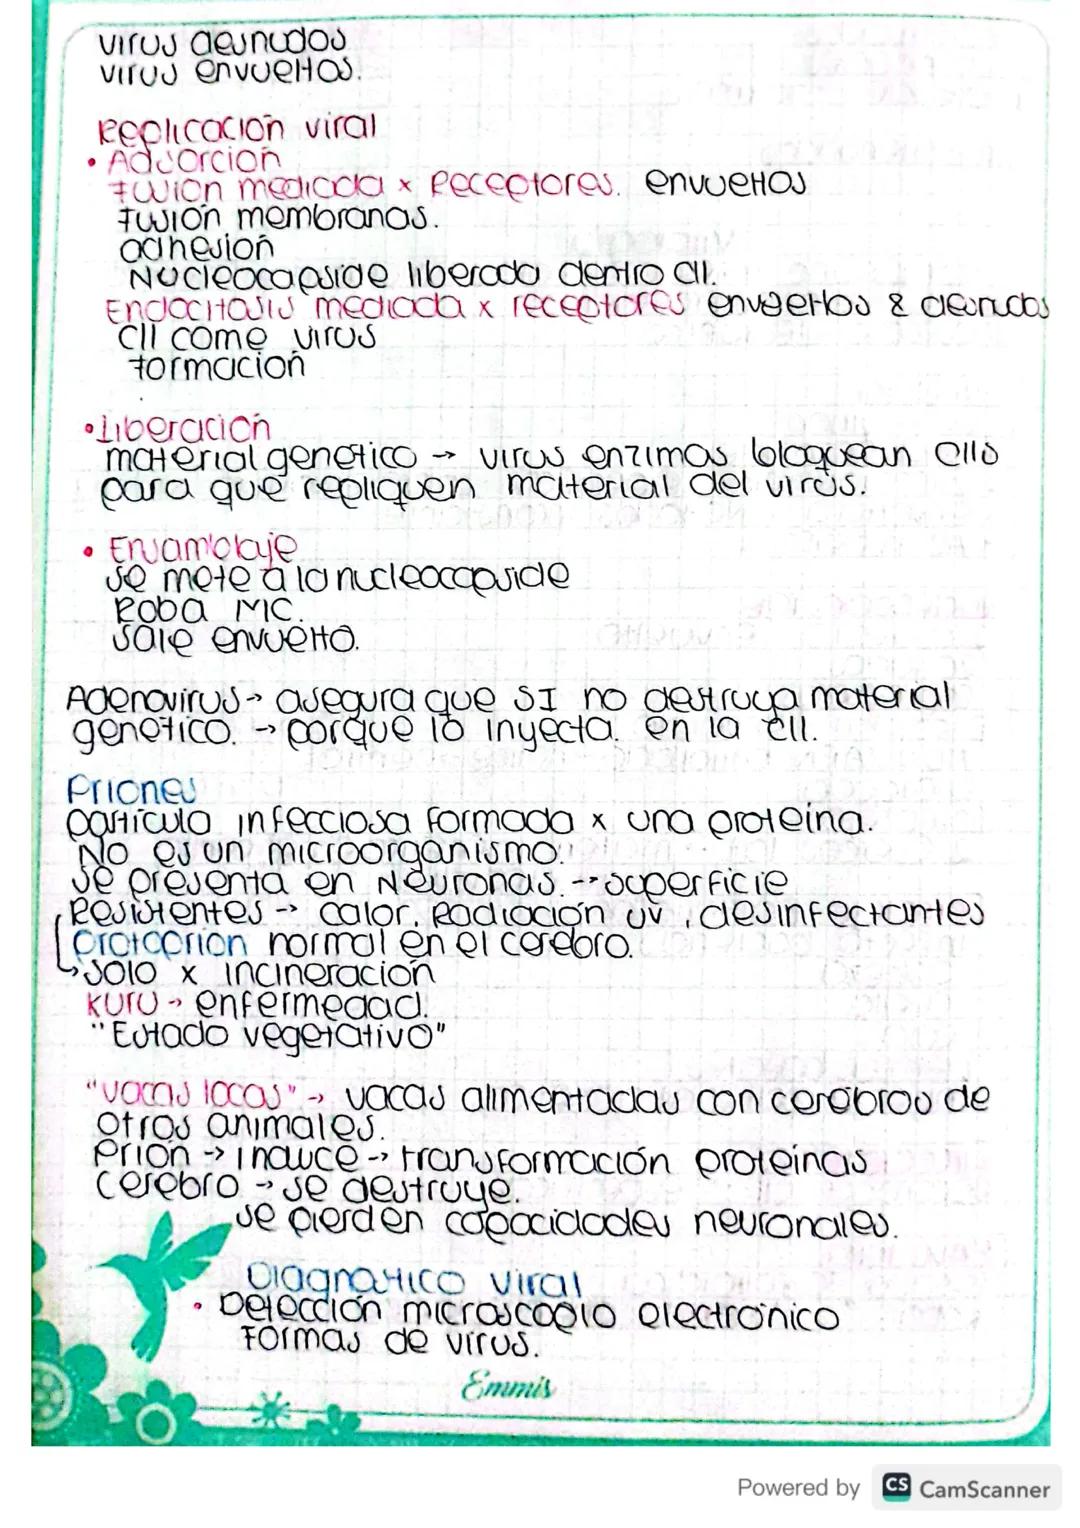 virus desnudos
virus envueltos.
Replicación viral
• Adsorción
Fusión mediada x Receptores. envueltos
Fusión membranas.
adhesión
Nucleocapside liberada dentro cll.
Endocitosis mediada x receptores envueltos & desnudos
Cll come virus
formación
• Liberación
material genético → virus enzimas bloquean clls
para que repliquen material del virus.
• Ensamblaje
se mete a la nucleocapside
Roba MC.
Sale envuelto.
Adenovirus → asegura que SI no destruya material
genético. → porque lo inyecta. en la cll.
Priones
partícula infecciosa formada x una proteína.
No es un microorganismo.
se presenta en Neuronas. → superficie
Resistentes → calor, Radiación uv, desinfectantes
normal en el cerebro.
↳ Solo x incineración
Kuru → enfermedad.
"Estado vegetativo"
"vacas locas" → vacas alimentadas con cerebros de
otros animales.
Prión → induce → transformación proteínas
Cerebro → se destruye.
se pierden capacidades neuronales.
Diagnostico viral
• Detección microscopio electrónico
Formas de virus.
Emmis
Powered by CS CamScanner